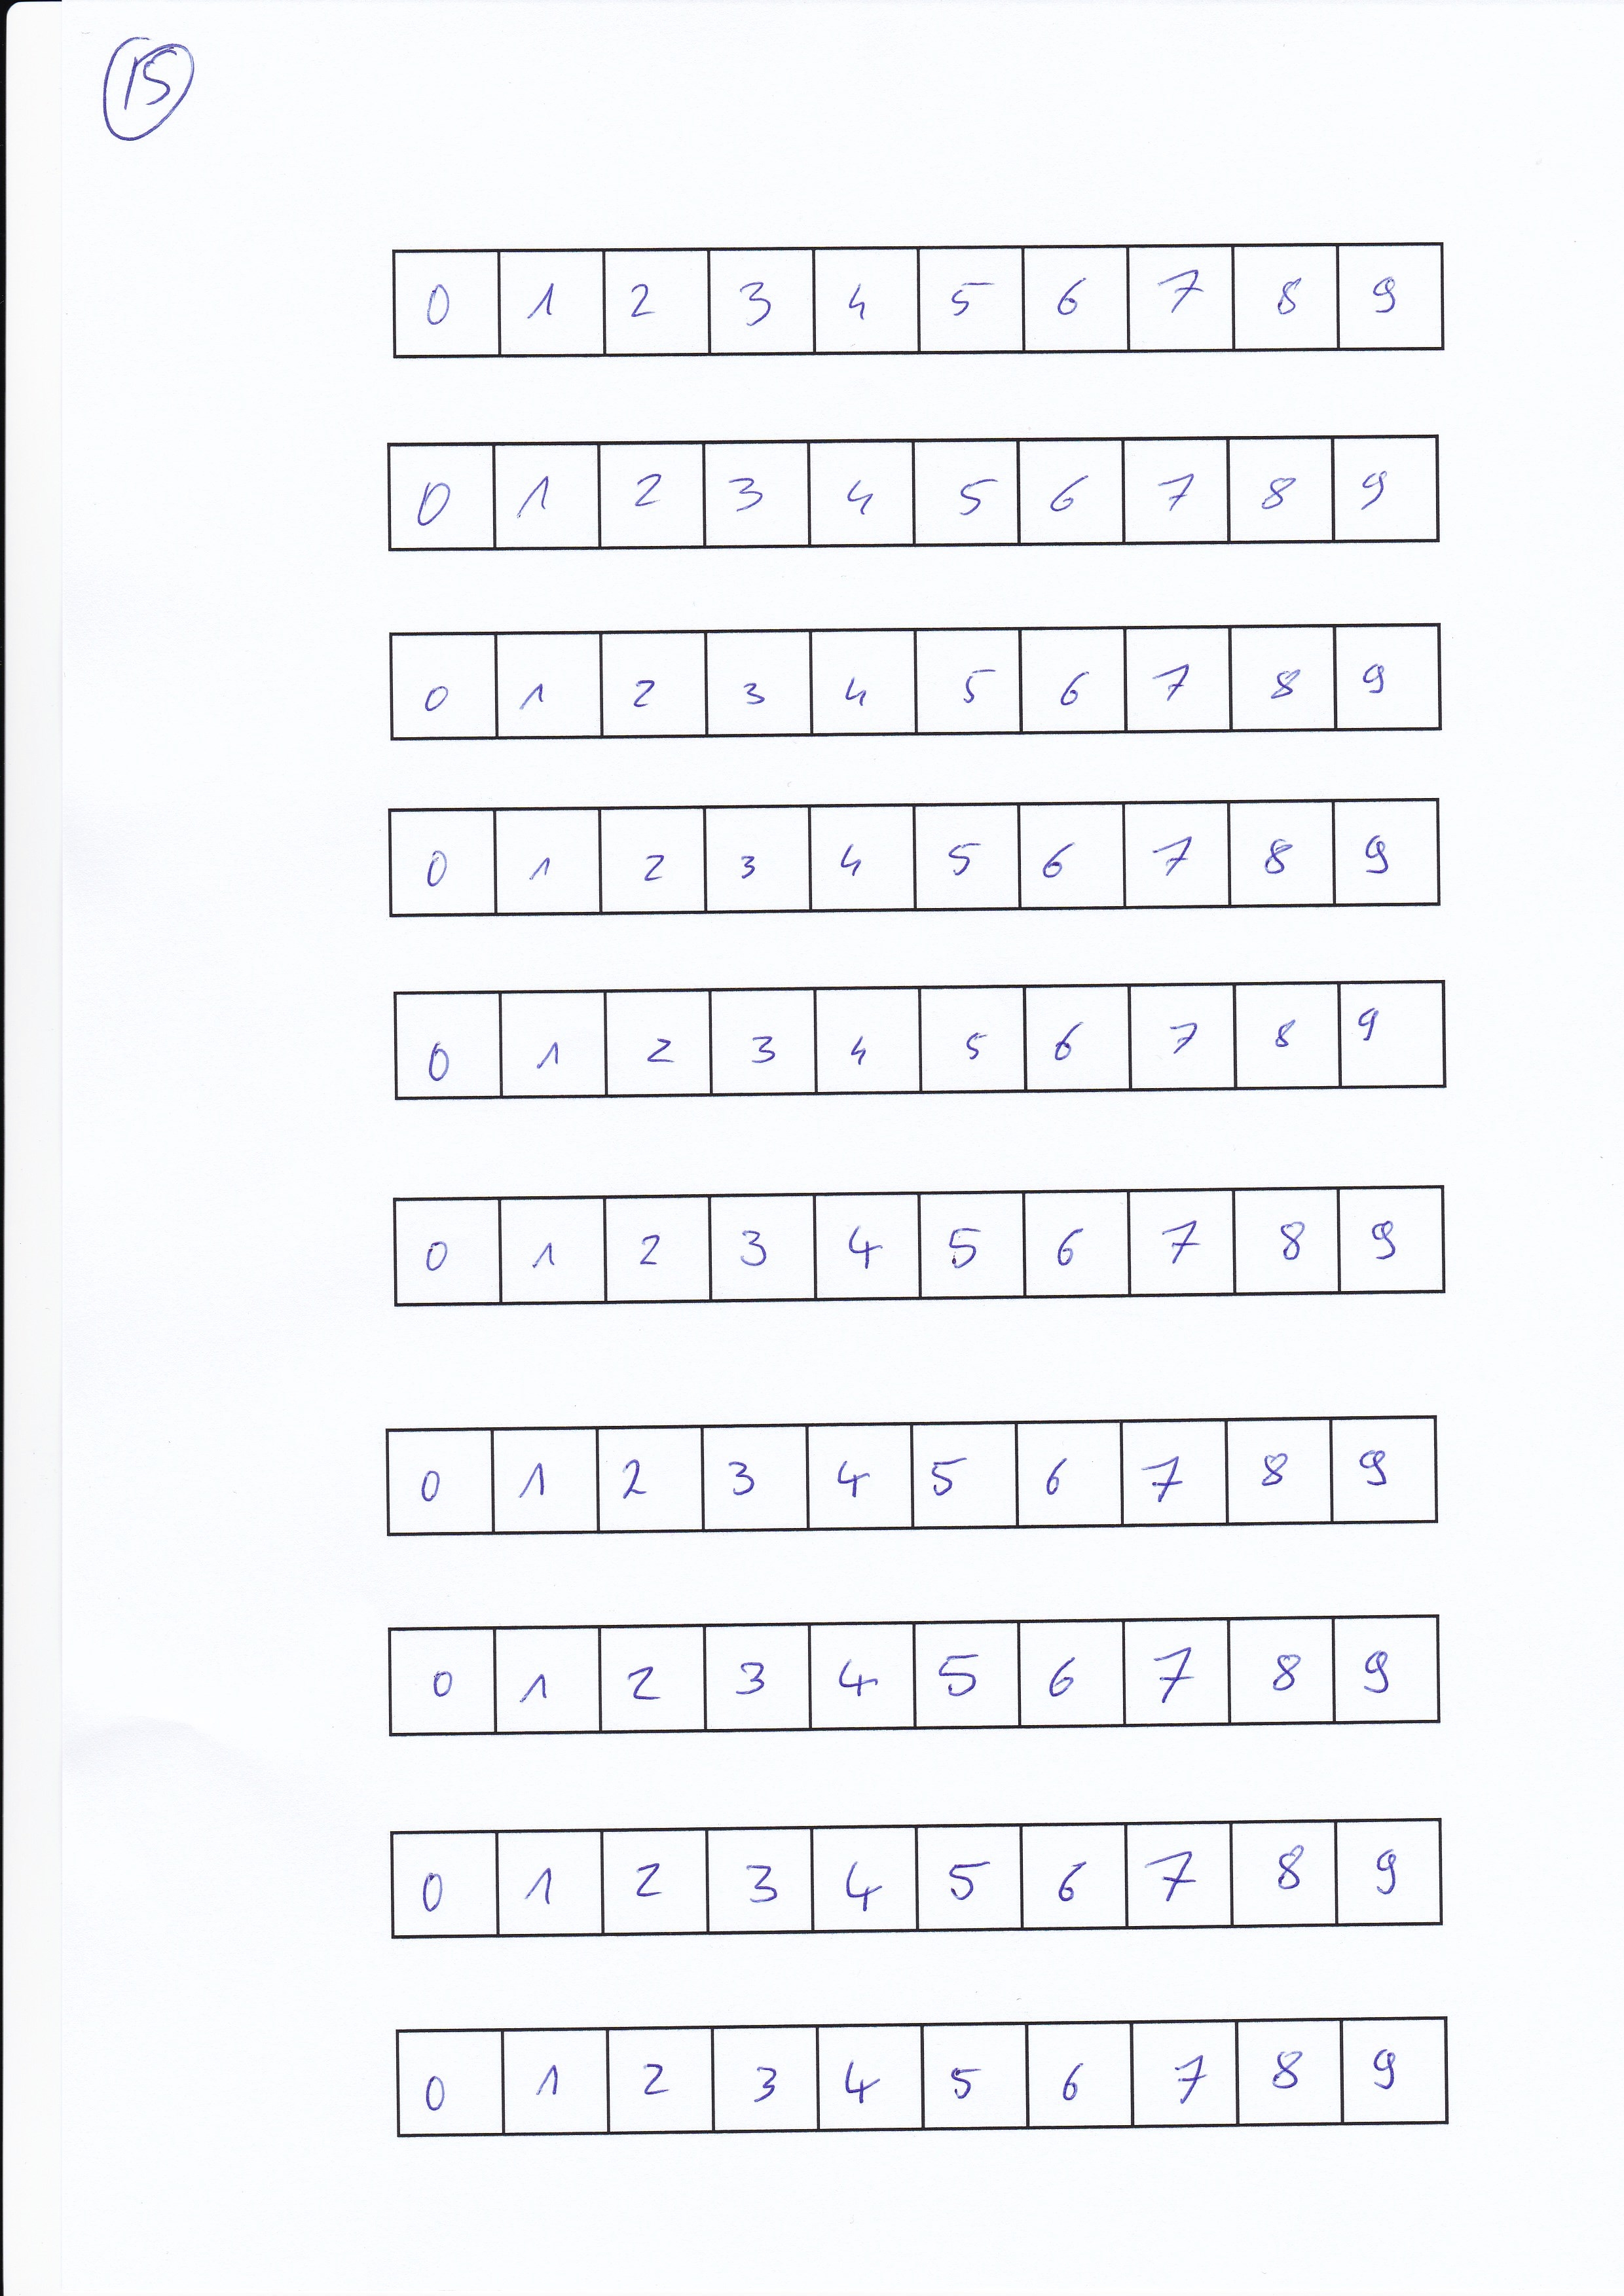 15
0 1 2 3 4 5 6 7 8 9
0 1 2 3 4 5 6 7 8 9
0 1 2 3 4 5 6 7 8 9
0 1 2 3 4 5 6 7 8 9
0 1 2 3 4 5 6 7 8 9
0 1 2 3 4 5 6 7 8 9
0 1 2 3 4 5 6 7 8 9
0 1 2 3 4 5 6 7 8 9
0 1 2 3 4 5 6 7 8 9
0 1 2 3 4 5 6 7 8 9